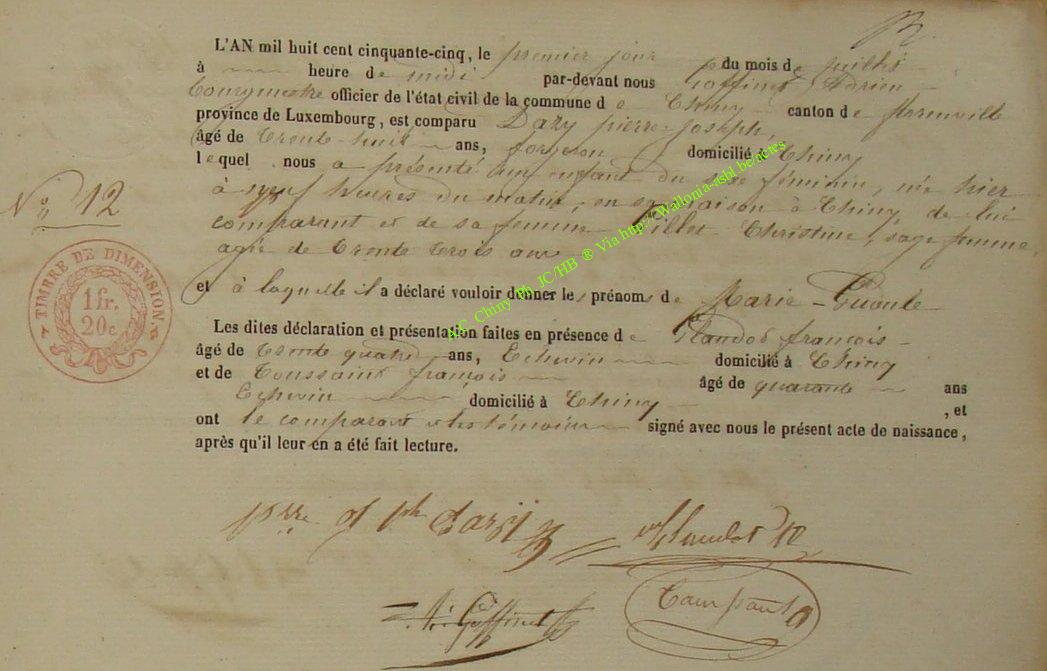 L'AN mil huit cent cinquante-cinq, le premier jour du mois de juillet
à heure de midi par-devant nous Goffinet Adrien
Bourgmestre officier de l'état civil de la commune de Chiny canton de Florenville
province de Luxembourg, est comparu Dazy pierre-Joseph,
âgé de Trente-huit ans, forgeron domicilié à Chiny
lequel nous a présenté un enfant du sexe féminin, née hier
N° 12
à neuf heures du matin, en sa maison à Chiny, de lui
comparant et de sa femme Christine, sage femme
agée de Trente trois ans
et à laquelle il a déclaré vouloir donner les prénoms de Marie-
TIMBRE DE DIMENSION.
1 fr.
20c
Les dites déclaration et présentation faites en présence de françois
âgé de Trente quatre ans, Echevin domicilié à Chiny
et de Toussaint françois âgé de quarante ans
Echevin domicilié à Chiny , et
ont le comparant et les témoins signé avec nous le présent acte de naissance,
après qu'il leur en a été fait lecture.
A.C. Chiny Ph JC/HB ® Via http://Wallonia-asbl.be/actes